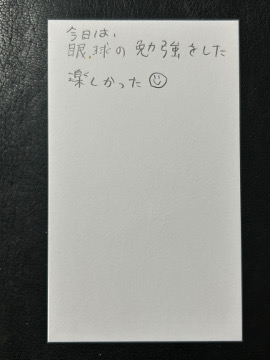 今日は、
眼球の勉強をした
楽しかった☺